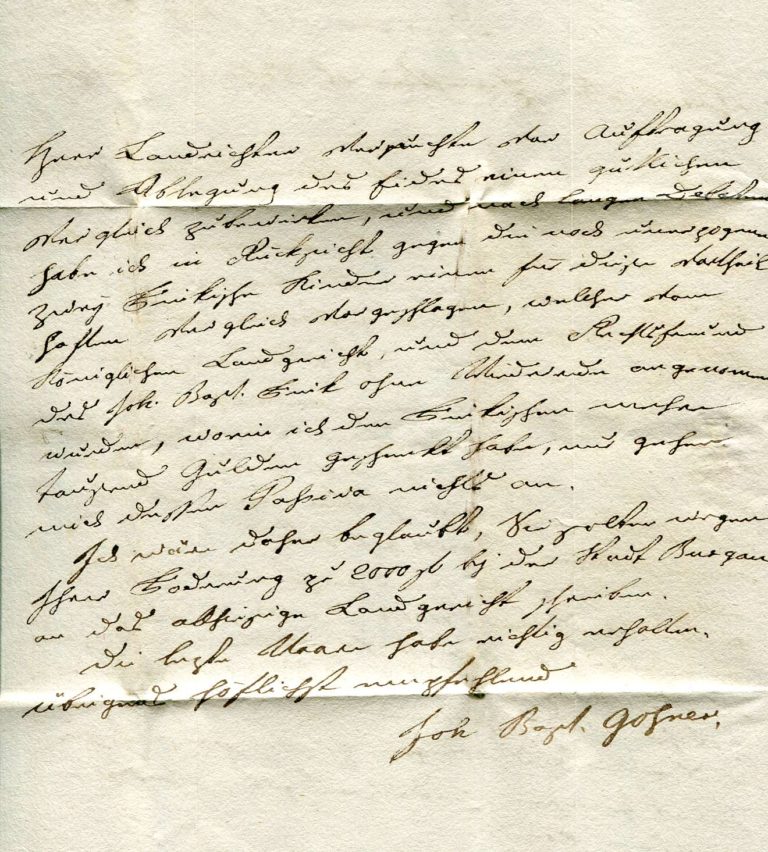 Herr Landrichter versuchte vor Auftragung
und Ablegung des Eides einen gütlichen
Vergleich zubewirken, und nach langen Debatten
habe ich in Rücksicht gegen die noch unerzogenen
zwey Kinder einen für diese vortheil
haften Vergleich vorgeschlagen, welcher vom
Königlichen Landgericht, und dem Rechtsfreund
des Joh. Bapt. ohne Widerrede angenommen
wurde, worin ich den mehr
tausend Gulden geschenkt habe, nur gehen
mich dessen Passiva nichts an.
Ich wäre daher beglaubt, Sie sollten wegen
Ihrer Foderung zu 2000 fl bey der Stadt Burgau
an das allhiesige Landgericht schreiben.
Die lezte Waare habe richtig erhalten.
übrigens höflichst empfehlend
Joh Bapt. Gohner.